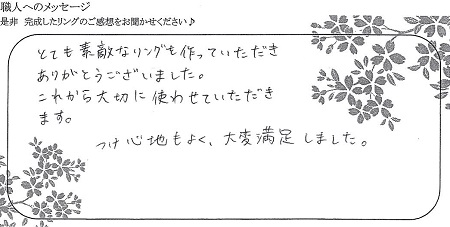 職人へのメッセージ
是非 完成したリングのご感想をお聞かせください♪
とても素敵なリングを作っていただき
ありがとうございました。
これから大切に使わせていただき
ます。
つけ心地もよく、大変満足しました。